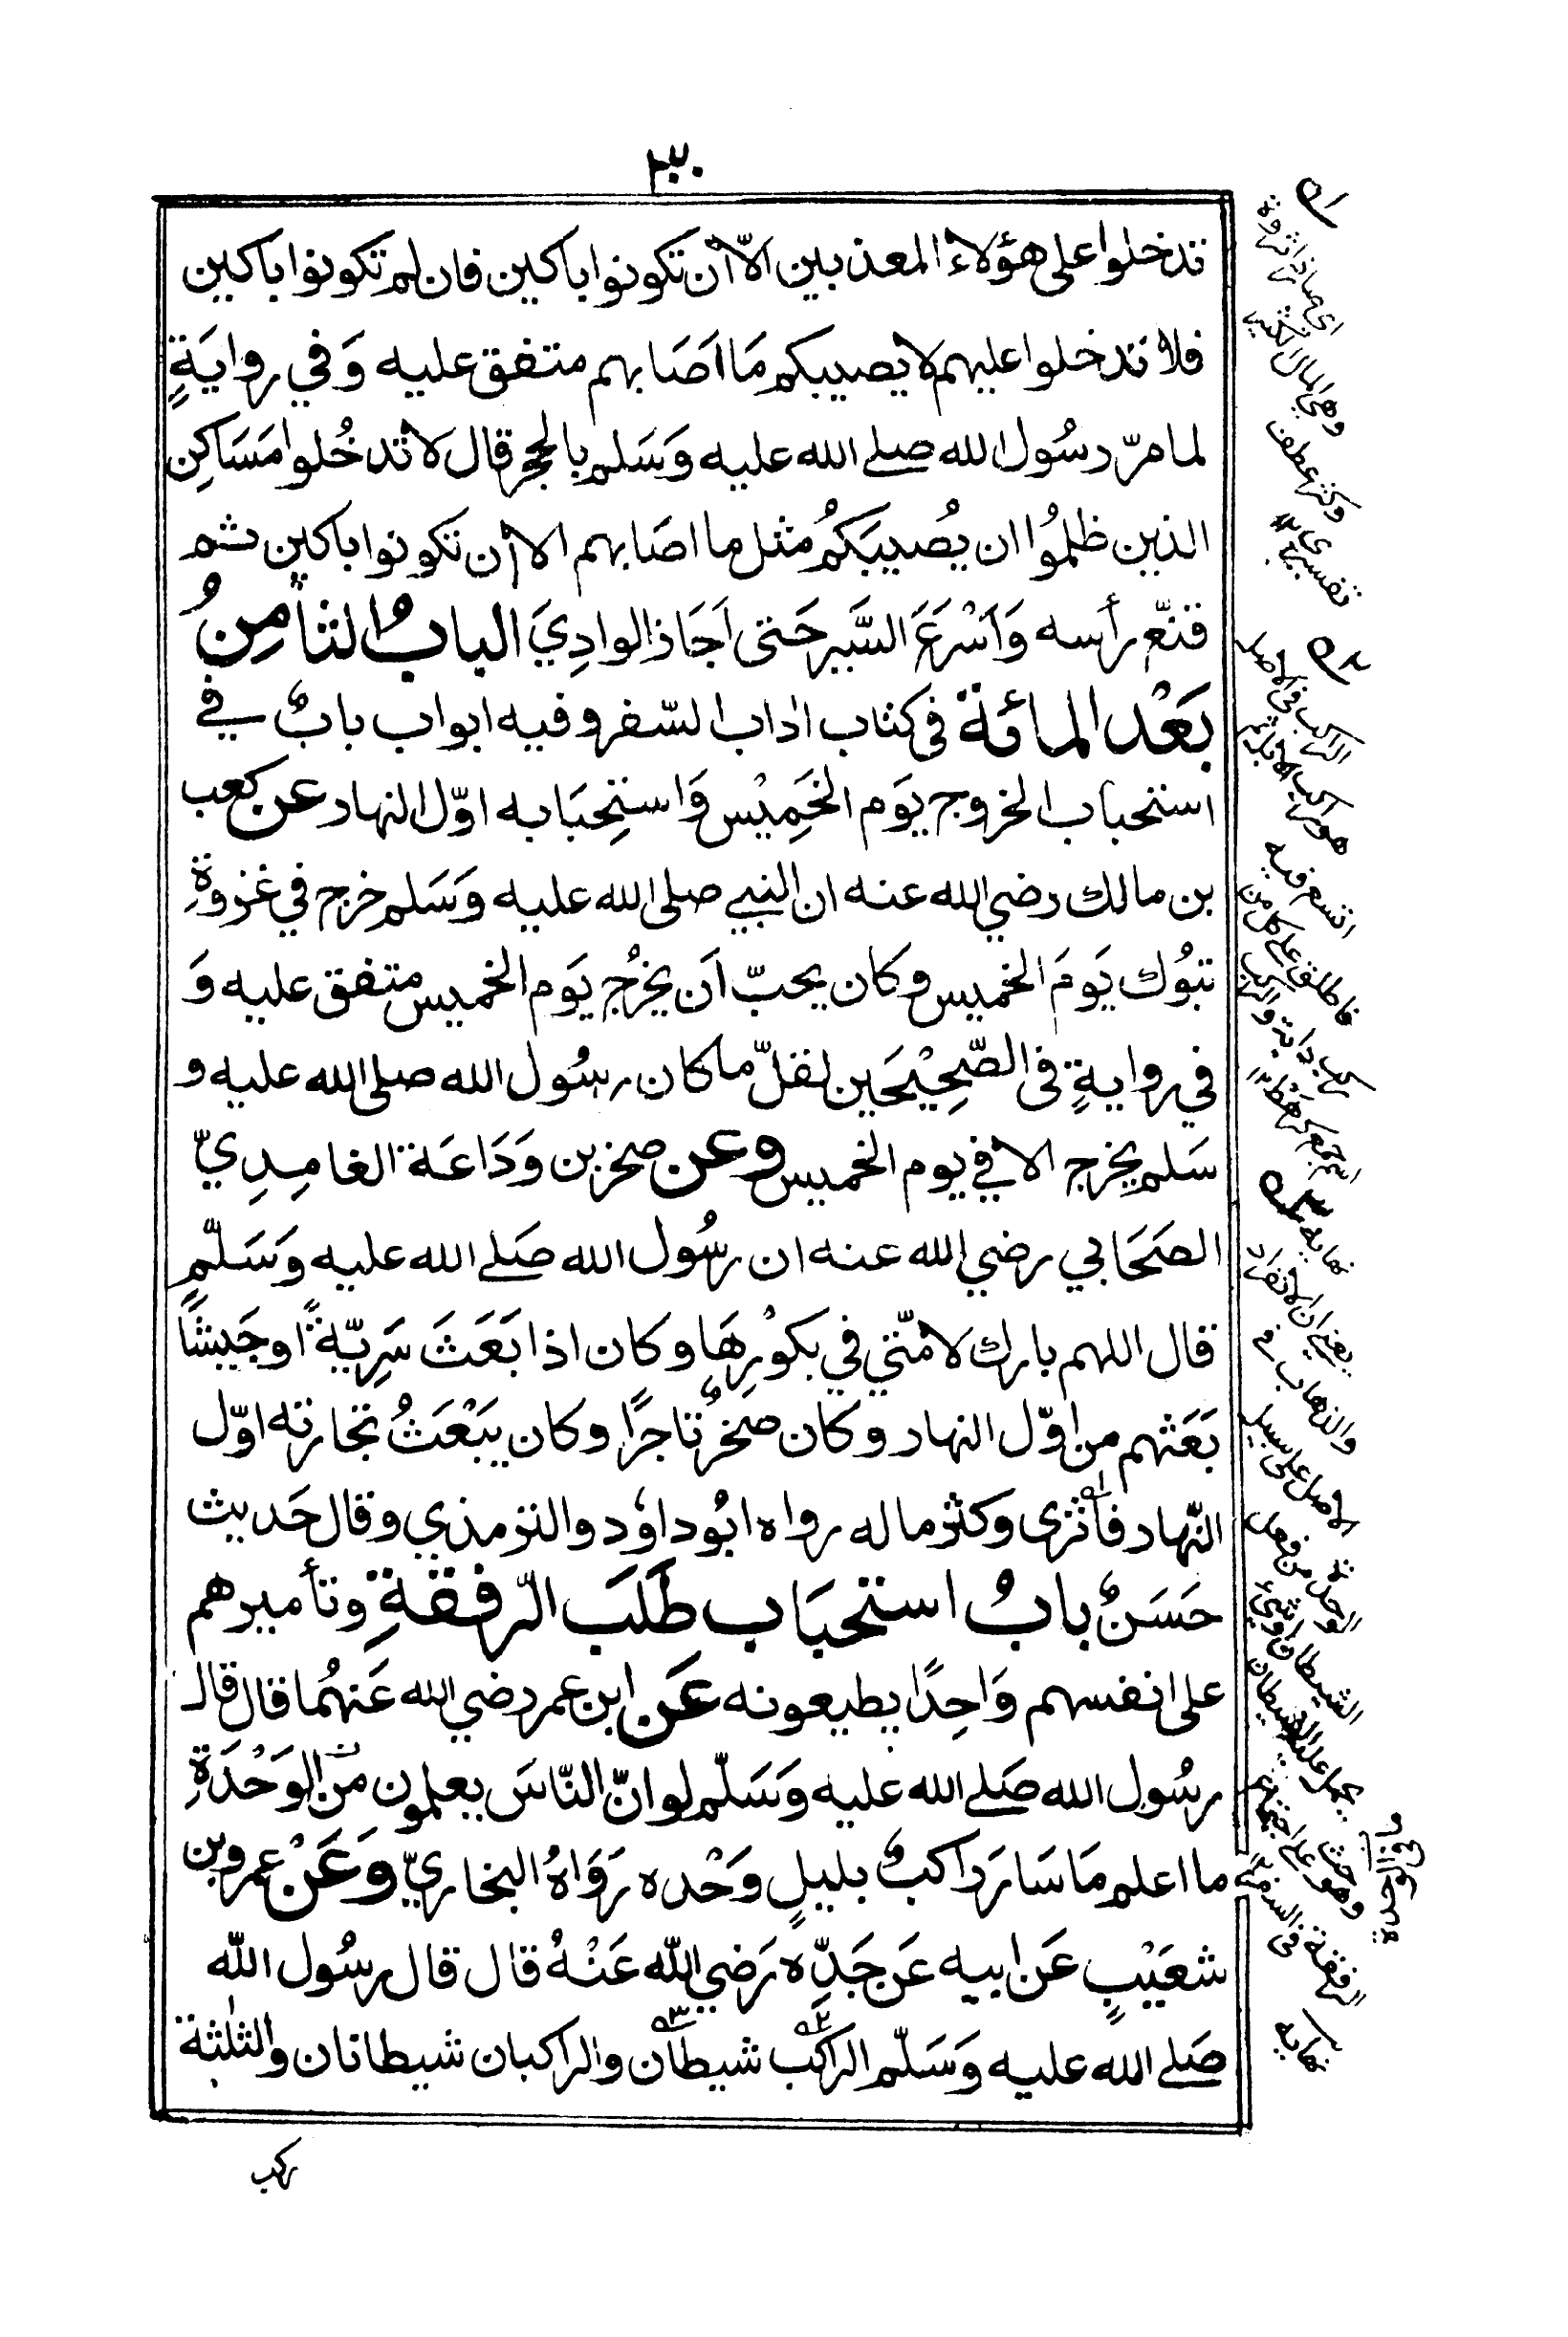 ٢٣٠
تدخلوا على هؤلاء المعذبين الاّ أن تكونوا باكين فان لم تكونوا باكين
فلا تدخلوا عليهم لا يصيبكم مَا اَصَابهم متفق عليه وَفي روايَةٍ
لما مرّ رسُول الله صلے الله عليه وَسَلم بالحجر قال لا تدخُلوا مَسَاكِن
الذين ظلمُوا ان يُصيبَكمُ مثل ما اصَابهم الا أن تكونوا باكين ثم
قنّع رأسه وَاَسْرعَ السَّير حَتى اَجَاز الوادِيَ البابُ الثامِنُ
بَعْد المائة فى كتاب اداب السّفر وفيه ابواب بابٌ في
استحباب الخروج يَوم الخَمِيْس وَاستِحبَابه اوّل النهار عن كعب
بن مالك رضي الله عنه ان النبي صلى الله عليه وَسَلم خرج في غزوةِ
تبُوك يَومَ الخميس وكان يحبّ اَن يخرُج يَوم الخميس متفق عليه وَ
في روايةٍ فى الصّحِيْحَين لقلّ ما كان رسُول الله صلى الله عليه و
سَلم يخرج الا في يوم الخميس وعن صخر بن وَدَاعَة الغامِدِيّ
الصَحَابي رضي الله عنه ان رسُول الله صَلے الله عليه وَسَلّم
قال اللهم بارك لامّتي في بكوْرِهَا وكان اذا بَعَثَ سَرِيّةً اوجَيشًا
بَعَثهم من اوّل النهار وكان صخرٌ تاجرًا وكان يَبْعَثُ تجارته اوّل
النّهار فأثرى وكثر ماله رواه ابُو داوٗد والترمذي وقال حَديث
حَسَنٌ بابُ استحبَاب طَلَب الرّفقةِ وتأميرهم
على انفسهم وَاحِدًا يطيعونه عَن ابن عمر رضي الله عَنهُما قال قال
رسُول الله صَلے الله عليه وَسَلّم لو انّ النّاسَ يعلمون منَ الوَحْدَةِ
ما اعلم مَا سَارَ راكبٌ بليلٍ وَحْده رَوَاهُ البخاريّ وَعَنْ عمرو بن
شعَيْبٍ عَن ابيه عَن جَدِّه رَضي الله عَنْهُ قال قال رسُول الله
صَلے الله عليه وَسَلّم الراكب شيطان والراكبان شيطانان والثلٰثة
ركب
اى صار ذا ثروة
وهي المال الكثير
وكثر عطف
تفسيرى
الراكب فى الاصل
هو راكب الابل ثم
اتسع فيه
فاطلق على كل من
ركب دابة
نهايه
يعني ان الانفراد
والذهاب في
الارض على سبيل
الوحدة من فعل
الشيطان
وهو حث على اجتماع
الرفقة فى السفر
نهايه